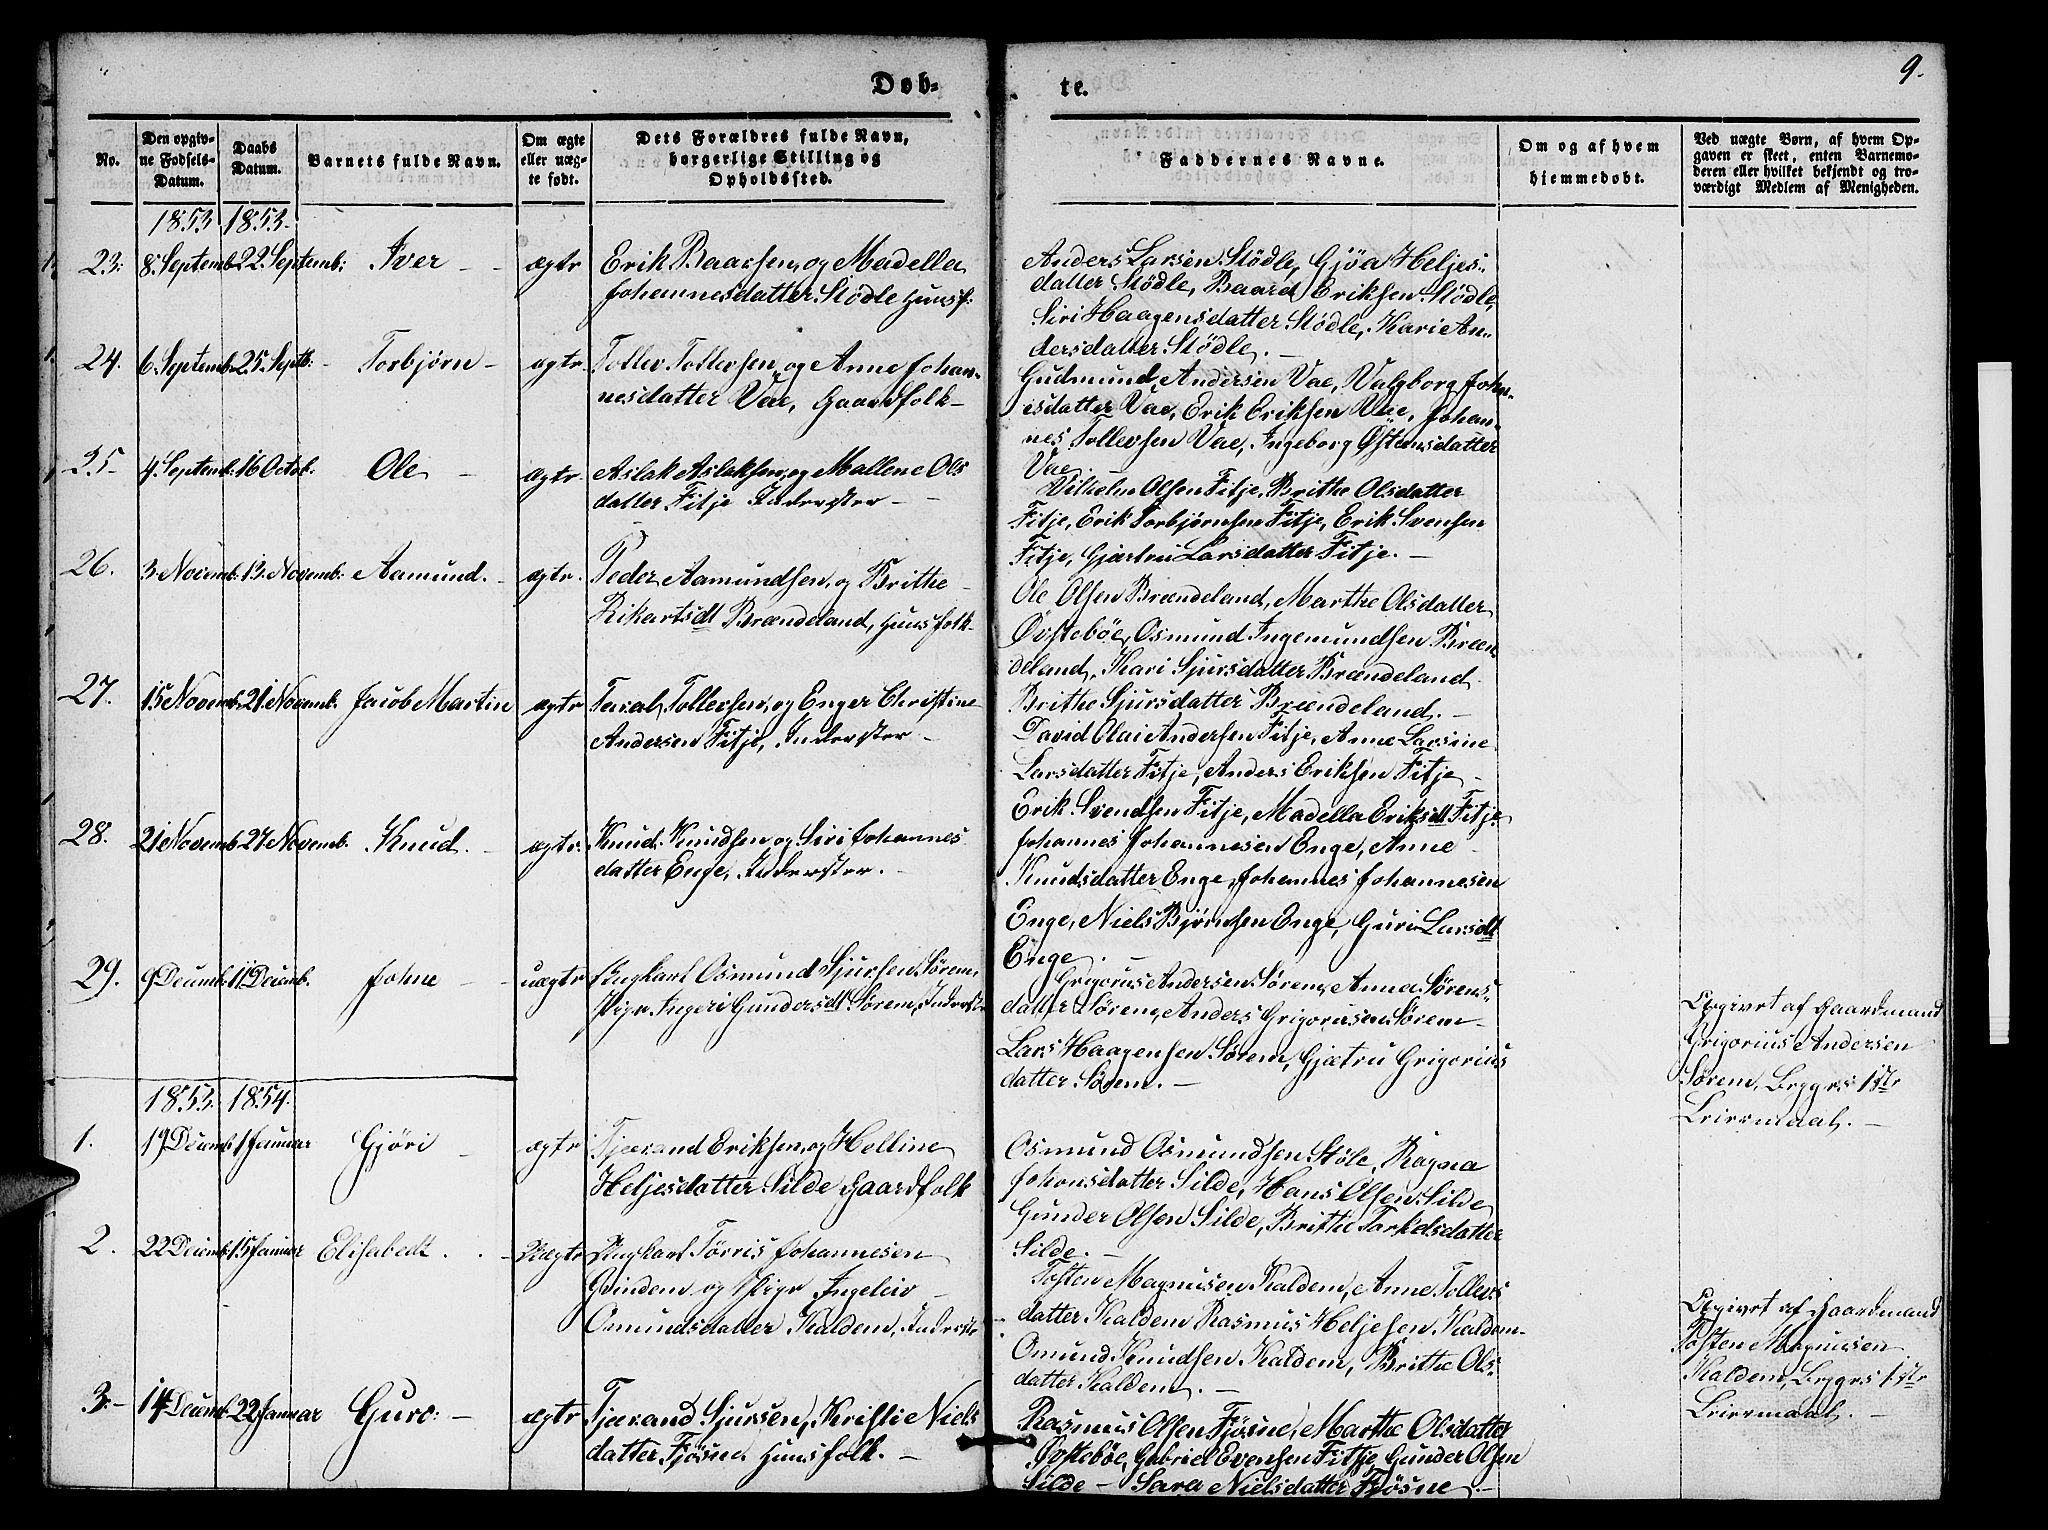 Døb-
te.
9.
No.
Den opgiv-
ne Fødsels-
Datum.
Daabs
Datum.
Barnets fulde Navn.
Om ægte
eller uæg-
te født.
Dets Forældres fulde Navn,
borgerlige Stilling og
Opholdssted.
Faddernes Navne.
Om og af hvem
hiemmedøbt.
Ved uægte Børn, af hvem Op-
gaven er skeet, enten Barnemo-
deren eller hvilket bekjendt og tro-
værdigt Medlem af Menigheden.
1853 1853.
23. 8. Septemb. 22. Septemb: Iver - ægte
Erik Baardsen, og Madella
Johannesdatter Stödle Huusf:
Anders Larsen Stödle, Gjöa Heljes-
datter Stödle, Baard Eriksen Stödle,
Siri Haagensdatter Stödle, Kari An-
dersdatter Stödle. -
24. 6. Septemb. 25. Septb. Torbjørn - ægte
Tollev Tollevsen, og Anne Johan-
nesdatter Vae, Gaardfolk -
Gudmund Andersen Vae, Valgborg Johan-
nesdatter Vae, Erik Eriksen Vae, Johan-
nes Tollevsen Vae, Ingeborg Östensdatter
Vae.
25. 4. Septemb. 16 Octob. Ole - ægte
Aslak Aslaksen, og Mallene Ols
datter Fitje Inderster -
Vilhelm Olsen Fitje, Brithe Olsdatter
Fitje, Erik Torbjørnsen Fitje, Erik Svensen
Fitje, Gjertru Larsdatter Fitje. -
26. 3. Novemb: 13. Novemb: Aamund. - ægte.
Peder Aamundsen, og Brithe
Rikartsdt Brændeland, Huusfolk.
Ole Olsen Brændeland, Marthe Olsdatter
Øvstebøe, Osmund Ingemundsen Bræn-
deland, Kari Sjursdatter Brændeland.
Brithe Sjursdatter Brændeland. -
27. 15 Novemb. 21. Novemb. Jacob Martin ægte
Taral Tollevsen, og Enger Christine
Andersen Fitje, Inderster -
David Olai Andersen Fitje, Anne Larsine
Larsdatter Fitje, Anders Eriksen Fitje -
Erik Svendsen Fitje, Madella Eriksdt Fitje
28. 21 Novemb 27 Novemb. Knud. - ægte.
Knud Knudsen og Siri Johannes
datter Enge, Inderster. -
Johannes Johannesen Enge, Anne
Knudsdatter Enge, Johannes Johannesen
Enge, Niels Bjørnsen Enge, Guri Larsdt
Enge. -
29. 9 Decemb. 11 Decemb. Johne - uægte
Ungkarl Osmund Sjursen Sörem,
Pige Ingeri Gundersdt Sörem, Inderste
Grigorius Andersen Sörem, Anna Sörens-
datter Sörem, Anders Grigoriusen Sörem
Lars Haagensen Sörem, Gjætru Grigorius
datter Sörem. -
Opgivet af Gaardmand
Grigorius Andersen
Sörem, Begges 1ste
Leiermaal. -
1853. 1854.
1. 19 Decemb. 1 Januar Gjöri - ægte
Tjærand Eriksen, og Helline
Heljesdatter Silde Gaardfolk
Osmund Osmundsen Støle, Ragna
Johansdatter Silde, Hans Olsen Silde
Gunder Olsen Silde, Brithe Torkelsdatter
Silde. -
2. 22 Decemb. 15 Januar Elisabedt. - Uægte
Ungkarl Törris Johannesen
Grindem og Pige Ingeleiv
Omundsdatter Kaldem, Inderste
Tosten Magnusen Kaldem, Anne Tollevs
datter Kaldem Rasmus Heljesen Kaldem
Omund Knudsen Kaldem, Brithe Ols-
datter Kaldem. -
Opgivet af Gaardmand
Tosten Magnusen
Kaldem, Begges 1ste
Leiermaal. -
3. - 14 Decemb. 22 Januar Guro: - ægte
Tjærand Sjursen, Kristi Niels
datter Fjösne Huusfolk. -
Rasmus Olsen Fjösne, Marthe Olsdatter
Øvstebøe, Gabriel Evensen Fitje, Gunder Olsen
Silde - Sara Nielsdatter Fjösne. -